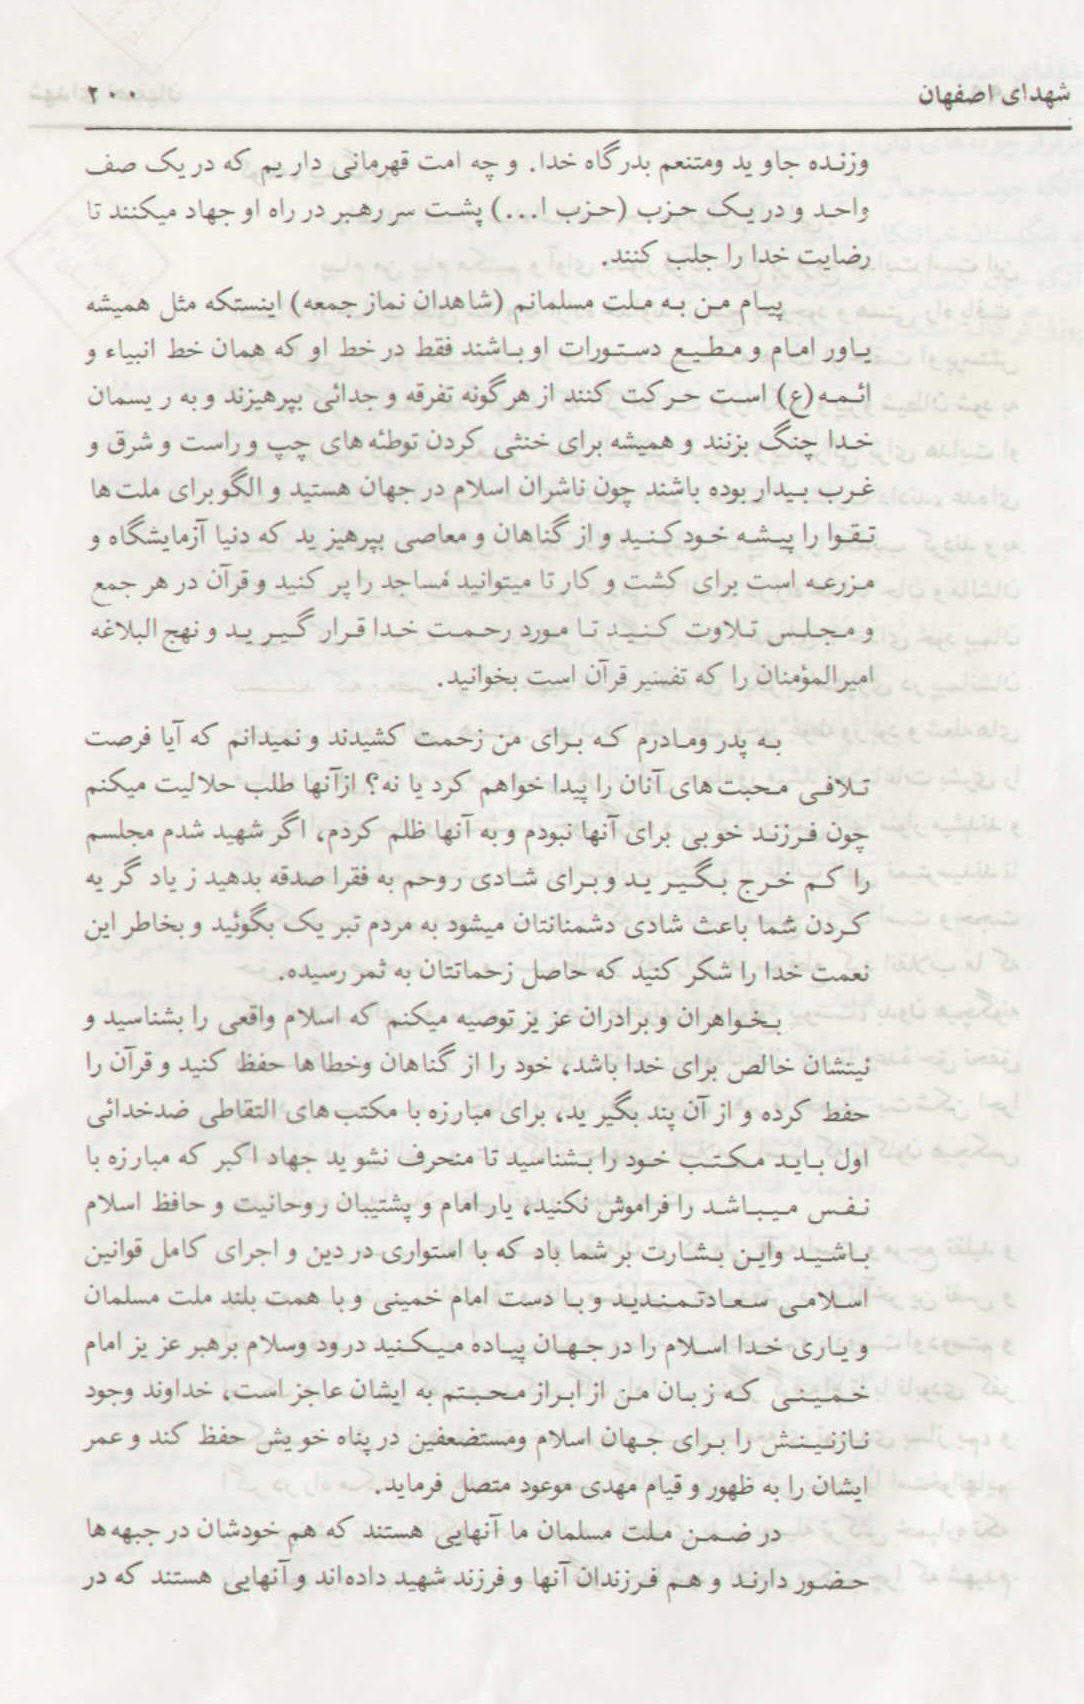 شهدای اصفهان ۲۰۰
وزنده جاوید ومتنعم بدرگاه خدا. و چه امت قهرمانی داریم که در یک صف
واحد و در یک حزب (حزب ا...) پشت سر رهبر در راه او جهاد میکنند تا
رضایت خدا را جلب کنند.
پیام من به ملت مسلمانم (شاهدان نماز جمعه) اینستکه مثل همیشه
یاور امام و مطیع دستورات او باشند فقط در خط او که همان خط انبیاء و
ائمه (ع) است حرکت کنند از هرگونه تفرقه و جدائی بپرهیزند و به ریسمان
خدا چنگ بزنند و همیشه برای خنثی کردن توطئه های چپ و راست و شرق و
غرب بیدار بوده باشند چون ناشران اسلام در جهان هستید و الگو برای ملت ها
تقوا را پیشه خود کنید و از گناهان و معاصی بپرهیزید که دنیا آزمایشگاه و
مزرعه است برای کشت و کار تا میتوانید مساجد را پر کنید و قرآن در هر جمع
و مجلس تلاوت کنید تا مورد رحمت خدا قرار گیرید و نهج البلاغه
امیرالمؤمنان را که تفسیر قرآن است بخوانید.
به پدر ومادرم که برای من زحمت کشیدند و نمیدانم که آیا فرصت
تلافی محبت های آنان را پیدا خواهم کرد یا نه؟ ازآنها طلب حلالیت میکنم
چون فرزند خوبی برای آنها نبودم و به آنها ظلم کردم، اگر شهید شدم مجلسم
را کم خرج بگیرید و برای شادی روحم به فقرا صدقه بدهید زیاد گریه
کردن شما باعث شادی دشمنانتان میشود به مردم تبریک بگوئید و بخاطر این
نعمت خدا را شکر کنید که حاصل زحماتتان به ثمر رسیده.
بخواهران و برادران عزیز توصیه میکنم که اسلام واقعی را بشناسید و
نیتشان خالص برای خدا باشد، خود را از گناهان وخطاها حفظ کنید و قرآن را
حفظ کرده و از آن پند بگیرید، برای مبارزه با مکتب های التقاطی ضدخدائی
اول باید مکتب خود را بشناسید تا منحرف نشوید جهاد اکبر که مبارزه با
نفس میباشد را فراموش نکنید، یار امام و پشتیبان روحانیت و حافظ اسلام
باشید واین بشارت بر شما باد که با استواری در دین و اجرای کامل قوانین
اسلامی سعادتمندید و با دست امام خمینی و با همت بلند ملت مسلمان
و یاری خدا اسلام را در جهان پیاده میکنید درود وسلام برهبر عزیز امام
خمینی که زبان من از ابراز محبتم به ایشان عاجز است، خداوند وجود
نازنینش را برای جهان اسلام ومستضعفین در پناه خویش حفظ کند و عمر
ایشان را به ظهور و قیام مهدی موعود متصل فرماید.
در ضمن ملت مسلمان ما آنهایی هستند که هم خودشان در جبهه ها
حضور دارند و هم فرزندان آنها و فرزند شهید داده اند و آنهایی هستند که در